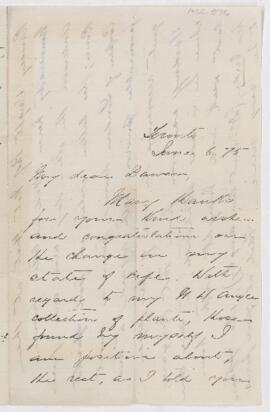 June 6, 75
My dear Dawson,
Many thanks
for your kind
and congratulations on
the change in my
state of life. With
regards to my
collection of plants, those
found by myself I
am positive about
the rest, as I told you,